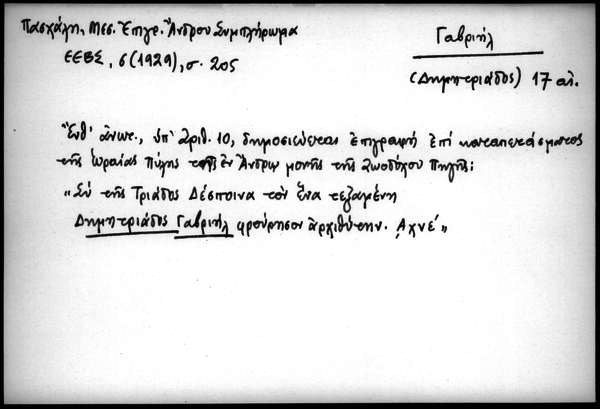 Πασχάλη, Μεσ. Ἐπιγρ. Ἄνδρου Συμπλήρωμα
Γαβριήλ
ΕΕΒΣ, 6 (1929), σ. 205
(Δημητριάδος) 17 αἰ.
"Ἔνθ' ἀνωτ., ὑπ' ἀριθ. 10, δημοσιεύεται ἐπιγραφή ἐπί καταπετάσματος
τῆς ὡραίας πύλης τῆς ἐν Ἄνδρῳ μονῆς τῆς Ζωοδόχου Πηγῆς:
"Σύ τῆς Τριάδος Δέσποινα τόν ἕνα τεξαμένη
Δημητριάδος Γαβριήλ φρούρησον ἀρχιθύτην. Αχνέ"